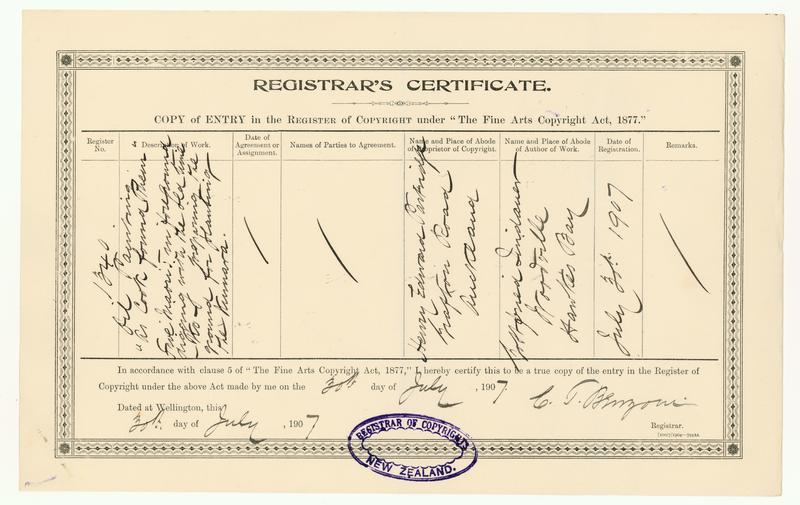 REGISTRAR'S CERTIFICATE.
COPY of ENTRY in the REGISTER of COPYRIGHT under "The Fine Arts Copyright Act, 1877."
Register No.
Description of Work.
Date of Agreement or Assignment.
Names of Parties to Agreement.
Name and Place of Abode of Proprietor of Copyright.
Name and Place of Abode of Author of Work.
Date of Registration.
Remarks.
1340
Oil Painting
"As Cook found Them"
Five Maori in foreground
digging with the old time
preparing the
ground for planting
the Kumara.
Henry Edward Partridge
Grafton Road
Auckland
Gottfried Lindauer
Woodville
Hawkes Bay
July 30th 1907
In accordance with clause 5 of "The Fine Arts Copyright Act, 1877," I hereby certify this to be a true copy of the entry in the Register of
Copyright under the above Act made by me on the 30th day of July, 1907
Dated at Wellington, this
30th day of July, 1907
REGISTRAR OF COPYRIGHT
NEW ZEALAND.
Registrar.